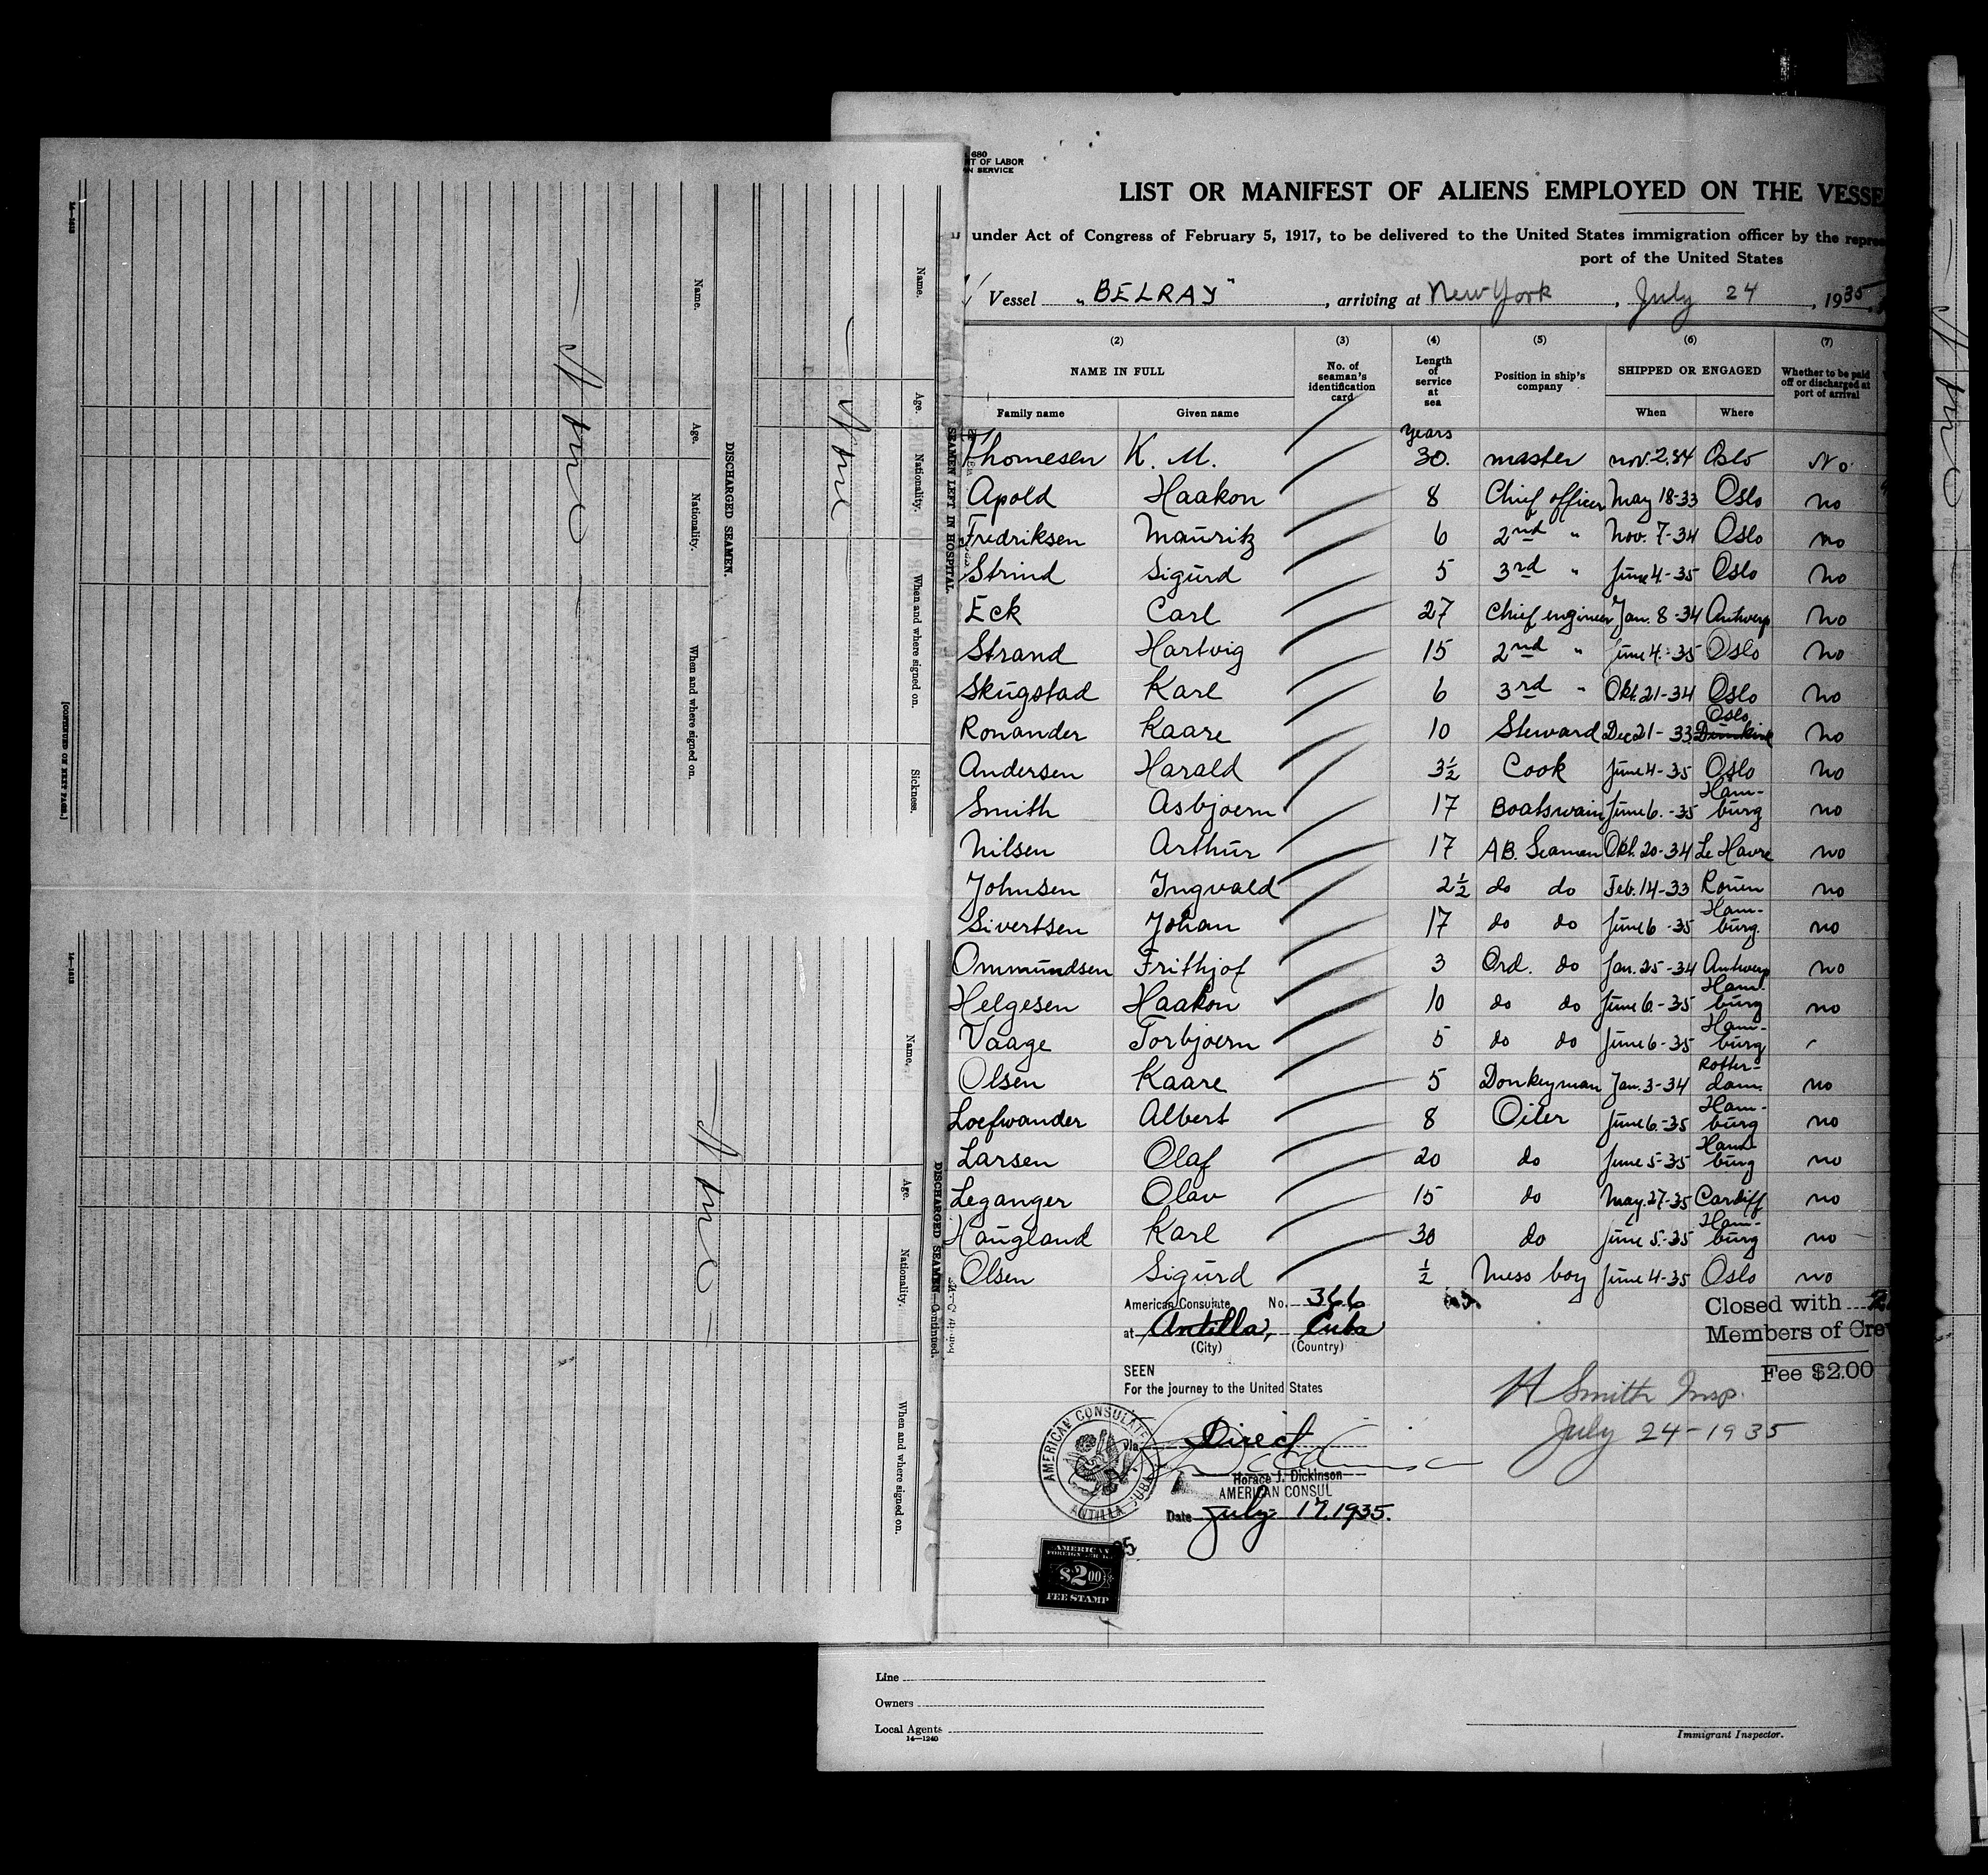 680
NT OF LABOR
ON SERVICE
LIST OR MANIFEST OF ALIENS EMPLOYED ON THE VESSE
under Act of Congress of February 5, 1917, to be delivered to the United States immigration officer by the repres
port of the United States
Vessel "BELRAY", arriving at New York, July 24, 1935
(2) (3) (4) (5) (6) (7)
NAME IN FULL No. of seaman's identification card Length of service at sea Position in ship's company SHIPPED OR ENGAGED Whether to be paid off or discharged at port of arrival
Family name Given name When Where
years
Thomesen K. M. 30. master nov. 2.34 Oslo No
Apold Haakon 8 Chief officer May 18-33 Oslo no
Fredriksen Mauritz 6 2nd " Nov. 7-34 Oslo no
Strind Sigurd 5 3rd " June 4.-35 Oslo no
Eck Carl 27 Chief engineer Jan. 8-34 Antwerp no
Strand Hartvig 15 2nd " June 4.-35 Oslo no
Skugstad Karl 6 3rd " Okt. 21-34 Oslo no
Ronander Kaare 10 Steward Dec 21-33 Oslo no
Andersen Harald 3½ Cook June 4-35 Oslo no
Smith Asbjoern 17 Boatswain June 6.-35 Ham-burg no
Nilsen Arthur 17 AB. Seaman Okt. 20-34 Le Havre no
Johnsen Ingvald 2½ do do Feb. 14-33 Rouen no
Sivertsen Johan 17 do do June 6-35 Ham-burg. no
Ommundsen Frithjof 3 Ord. do Jan. 25-34 Antwerp no
Helgesen Haakon 10 do do June 6.-35 Ham-burg no
Vaage Torbjoern 5 do do June 6-35 Ham-burg
Olsen Kaare 5 Donkeyman Jan. 3-34 Rotter-dam. no
Loefwander Albert 8 Oiler June 6.-35 Ham-burg no
Larsen Olaf 20 do June 5-35 Ham-burg no
Leganger Olav 15 do May. 27-35 Cardiff no
Haugland Karl 30 do June 5.-35 Ham-burg no
Olsen Sigurd ½ Mess boy June 4-35 Oslo no
American Consulate No. 366
at Antilla, Cuba
(City) (Country)
SEEN
For the journey to the United States
via Direct
Horace J. Dickinson
AMERICAN CONSUL
Date July 17, 1935.
AMERICAN CONSULATE
ANTILLA, CUBA
AMERICAN
FOREIGN SERVICE
$2.00
FEE STAMP
Closed with
Members of Cre
Fee $2.00
H Smith Insp.
July 24-1935
Line
Owners
Local Agents
14—1240
Immigrant Inspector.
SEAMEN LEFT IN HOSPITAL
Name. Age. Nationality. When and where signed on. Sickness.
None
DISCHARGED SEAMEN.
Name. Age. Nationality. When and where signed on.
None
[CONTINUED ON NEXT PAGE.]
DISCHARGED SEAMEN—Continued.
Name. Age. Nationality. When and where signed on.
None